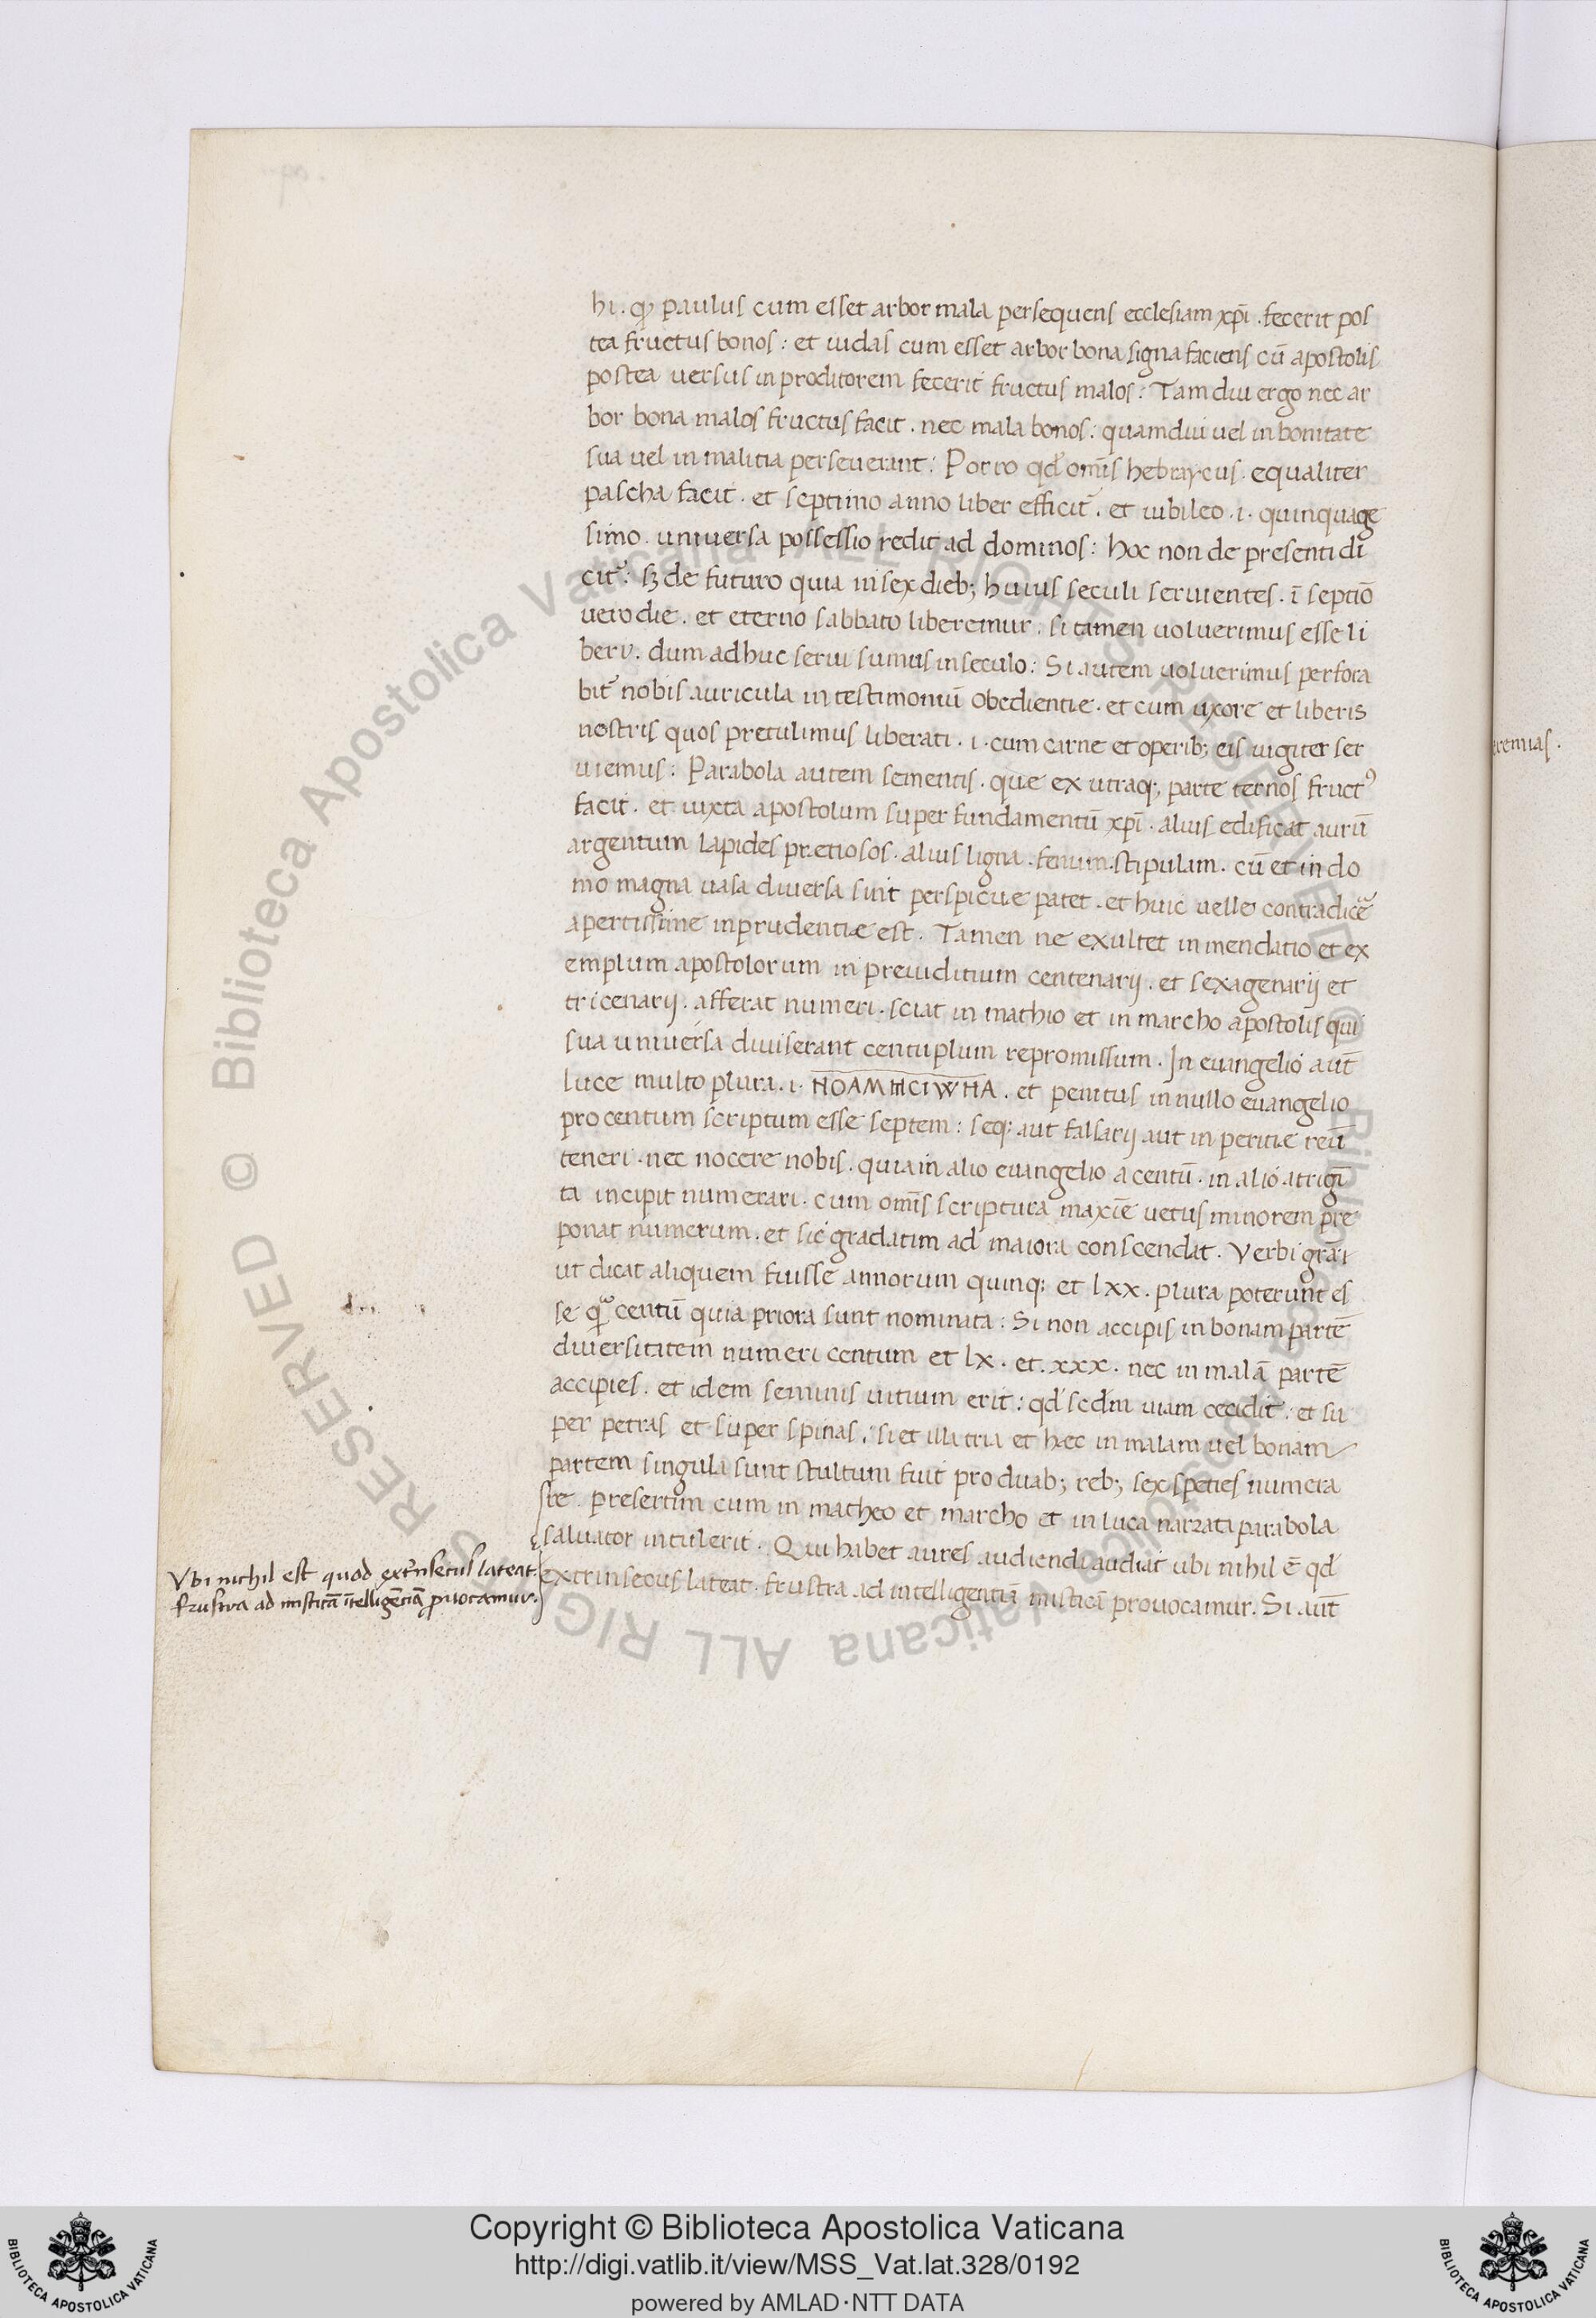 hi . qđ paulus cum esset arbor mala persequens ecclesiam xp̄i . fecerit pos
tea fructus bonos : et iudas cum esset arbor bona signa faciens cū apostolis
postea uersus in proditorem fecerit fructus malos : Tam diu ergo nec ar
bor bona malos fructus facit . nec mala bonos : quamdiu uel in bonitate
sua uel in malitia perseuerant : Porro qđ om̄s hebraycus . equaliter
pascha facit . et septimo anno liber efficit᷑ . et iubileo .i. quinquage
simo . uniuersa possessio redit ad dominos : hoc non de presenti di
cit᷑ : sꝫ de futuro quia in sex dieb; huius seculi seruientes . ī septīo
uero die . et eterno sabbato liberemur . si tamen uoluerimus esse li
beri . dum adhuc serui sumus in seculo : Si autem uoluerimus perfora
bit᷑ nobis auricula in testimoniū obedientie . et cum uxore et liberis
nostris quos pretulimus liberati .i. cum carne et operib; eis uigiter ser
uiemus : Parabola autem sementis . que ex utraq; parte ternos fructꝰ
facit . et iuxta apostolum super fundamentū xp̄i . alius edificat aurū
argentum lapides pretiosos . alius ligna . fenum . stipulam . cū et in do
mo magna uasa diuersa sint perspicue patet . et huic uelle contradicē
apertissime inprudentiæ est . Tamen ne exultet in mendatio et ex
emplum apostolorum in preiuditium centenarij . et sexagenarij et
tricenarij . afferat numeri . sciat in mathio et in marcho apostolis qui
sua uniuersa diuiserant centuplum repromissum . In euangelio aut̄
luce multo plura .i. . et penitus in nullo euangelio
pro centum scriptum esse septem : seq; aut falsarij aut inperitiæ reū
teneri . nec nocere nobis . quia in alio euangelio a centū . in alio a trigī
ta incipit numerari . cum om̄s scriptura maxīe uetus minorem pre
ponat numerum . et sic gradatim ad maiora conscendat . Verbi gr̄ai
ut dicat aliquem fuisse annorum quinq; et lxx . plura poterunt es
se qᷓ centū quia priora sunt nominata : Si non accipis in bonam partē
diuersitatem numeri centum et lx . et . xxx . nec in malā partē
accipies . et idem seminis uitium erit : qđ secđm uiam cecidit : et su
per petras et super spinas . si et illa tria et hæc in malam uel bonam
partem singula sunt stultum fuit pro duab; reb; sex speties numera
re . presertim cum in matheo et marcho et in luca narrata parabola
saluator intulerit . Qui habet aures audiendi audiat ubi nihil ē qđ
extrinsecus lateat . frustra ad intelligentiā misticā prouocamur . Si aut̄
Vbi nichil est quod extrinsecus lateat .
frustra ad misticā ītelligēciā ꝓuocamur .
eremias .
© Biblioteca Apostolica Vaticana ALL RIGHTS RESERVED
Copyright © Biblioteca Apostolica Vaticana
http://digi.vatlib.it/view/MSS_Vat.lat.328/0192
powered by AMLAD·NTT DATA
BIBLIOTECA APOSTOLICA VATICANA
BIBLIOTECA APOSTOLICA VATICANA